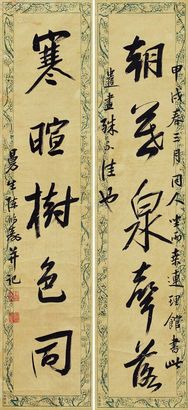 朝莫泉聲落
甲戌春三月同人坐雨桑連理館書此
遣殊不佳也
寒暄樹色同
曼生陳鴻壽并記